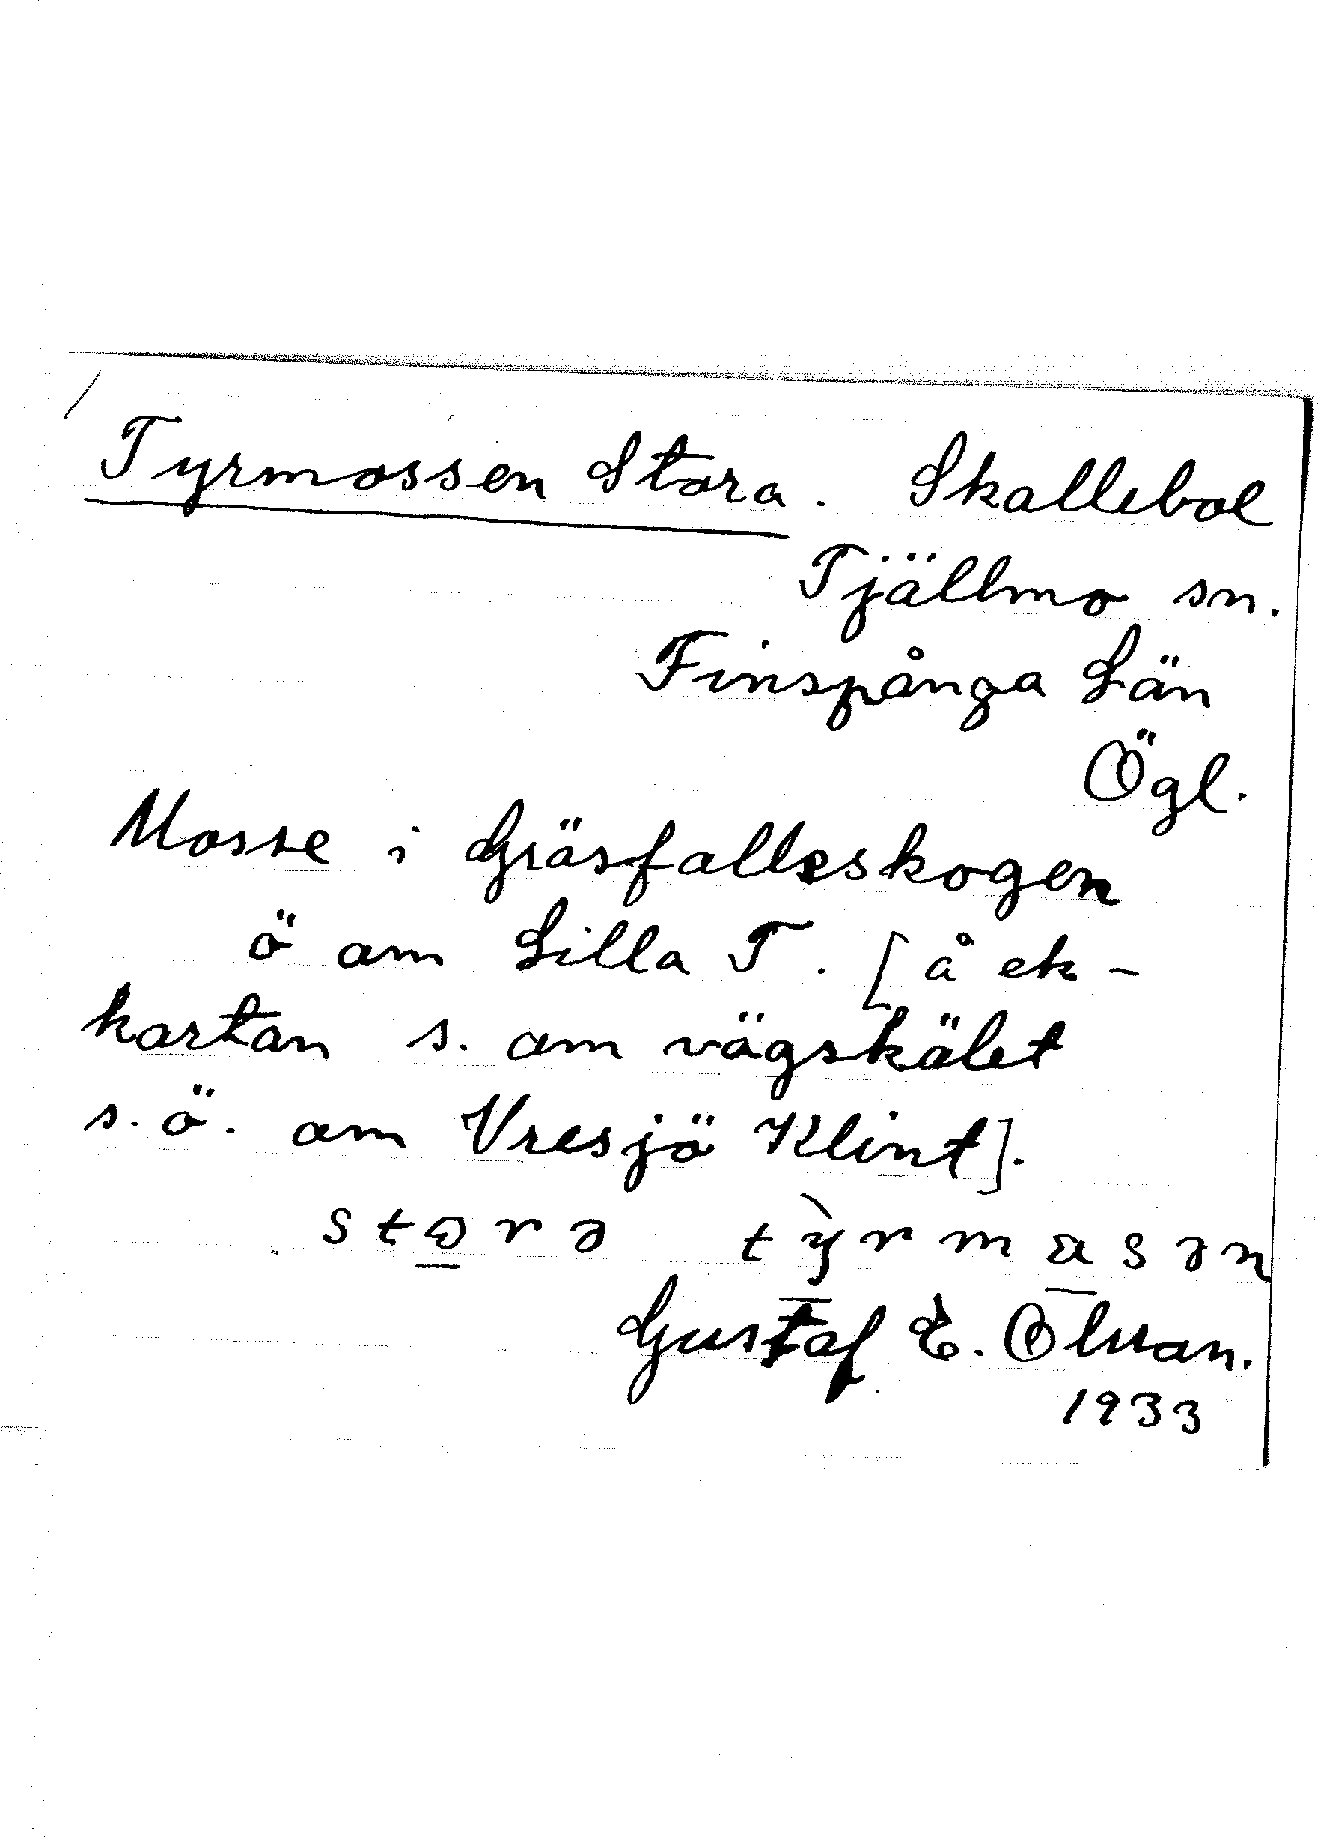 Tyrmossen Stora. Skallebol
Tjällmo sn.
Finspånga Län
Ögl.
Mosse i Gräsfallsskogen
ö om Lilla T. [å ek-
kartan s. om vägskälet
s.ö. om Vresjö Klint].
Gustaf E. Olsson.
1933